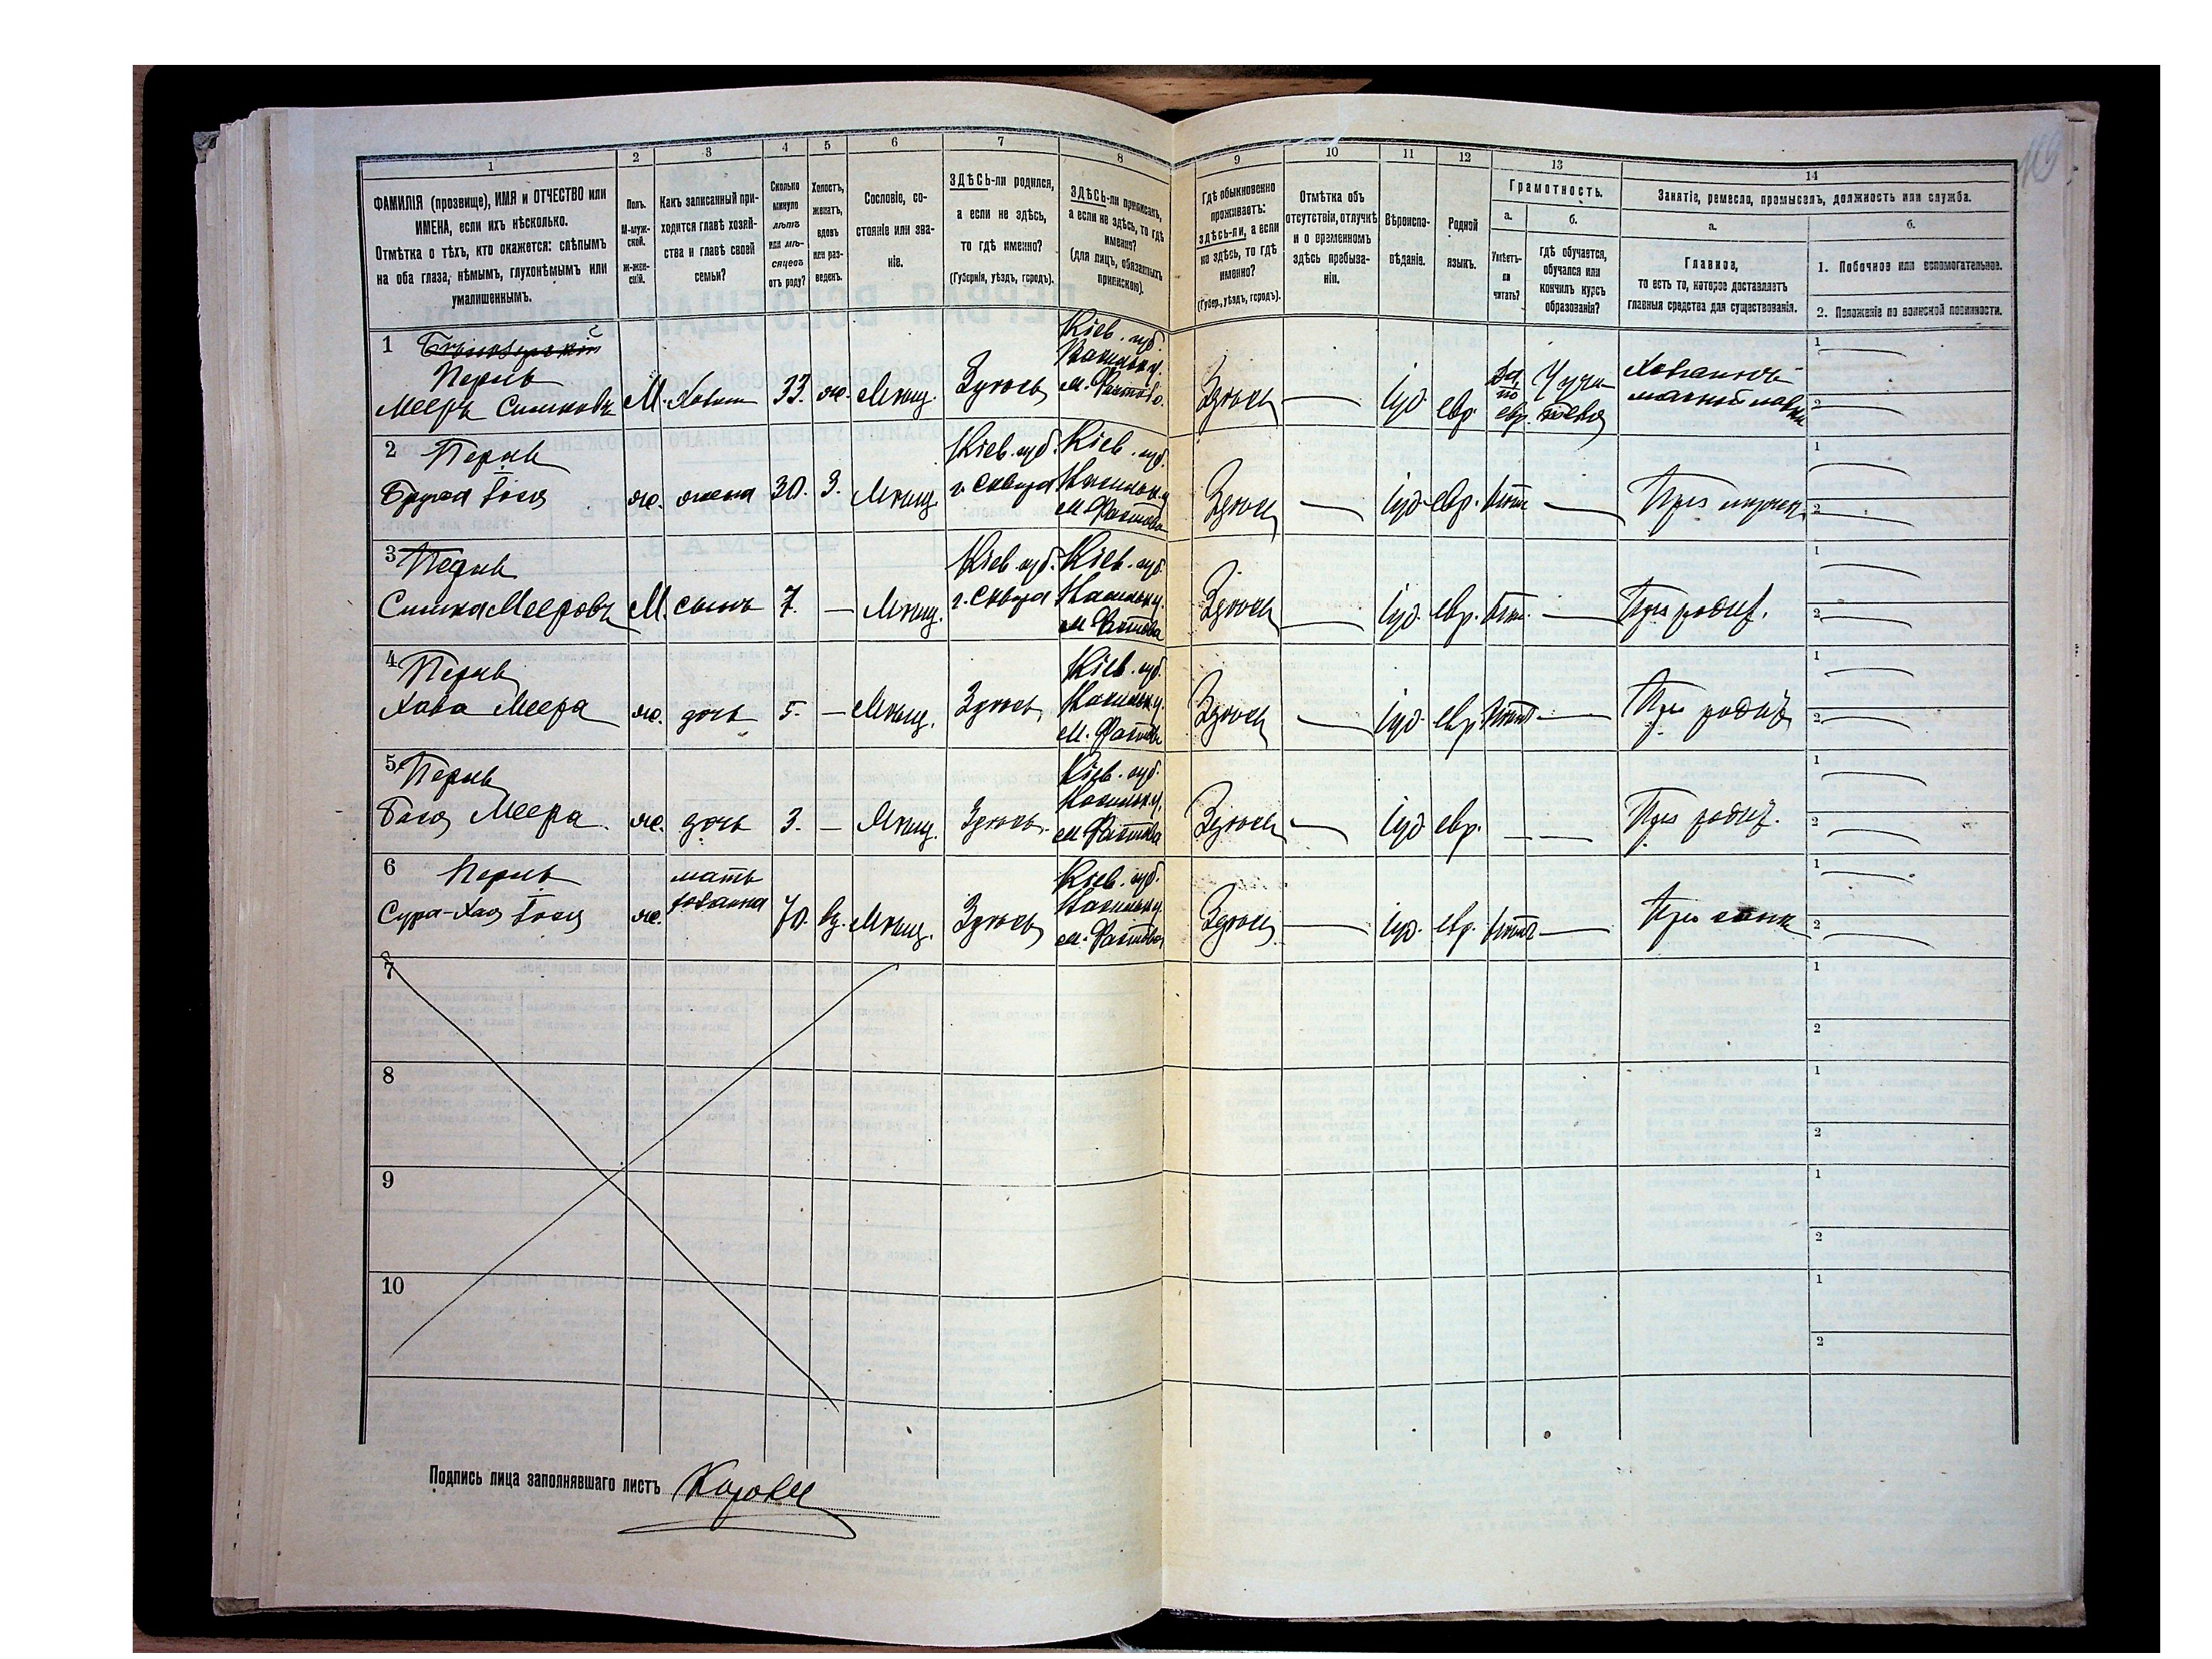 109
1 2 3 4 5 6 7 8 9 10 11 12 13 14
ФАМИЛІЯ (прозвище), ИМЯ и ОТЧЕСТВО или
ИМЕНА, если ихъ нѣсколько.
Отмѣтка о тѣхъ, кто окажется: слѣпымъ
на оба глаза, нѣмымъ, глухонѣмымъ или
умалишеннымъ.
Полъ.
М-муж-
ской.
Ж-жен-
скій.
Какъ записанный при-
ходится главѣ хозяй-
ства и главѣ своей
семьи?
Сколько
минуло
лѣтъ
или мѣ-
сяцевъ
отъ роду?
Холостъ,
женатъ,
вдовъ
или раз-
веденъ.
Сословіе, со-
стояніе или зва-
ніе.
ЗДѢСЬ-ли родился,
а если не здѣсь,
то гдѣ именно?
(Губернія, уѣздъ, городъ).
ЗДѢСЬ-ли приписанъ,
а если не здѣсь, то гдѣ
именно?
(для лицъ, обязанныхъ
припискою).
Гдѣ обыкновенно
проживаетъ:
здѣсь-ли, а если
не здѣсь, то гдѣ
именно?
(Губер., уѣздъ, городъ).
Отмѣтка объ
отсутствіи, отлучкѣ
и о временномъ
здѣсь пребыва-
ніи.
Вѣроиспо-
вѣданіе.
Родной
языкъ.
Грамотность.
а.
Умѣетъ-
ли
читать?
б.
гдѣ обучается,
обучался или
кончилъ курсъ
образованія?
Занятіе, ремесло, промыселъ, должность или служба.
а.
Главное,
то есть то, которое доставляетъ
главныя средства для существованія.
б.
1. Побочное или вспомогательное.
2. Положеніе по воинской повинности.
1
Перль
Мееръ Симковъ М. Хозяин 33. ж. Мѣщ. Здѣсь
Кіев. губ.
Васильк. у.
м. Фастова
Здѣсь — Іуд. евр. Да, по евр.
2 Перль
Бруха ж. жена 30. З. Мѣщ.
Кіев. губ.
г. Сквира
Кіев. губ.
Васильк. у.
м. Фастова
Здѣсь — Іуд. евр. нѣт — При мужѣ
3 Перль
Симка Мееровъ М. сынъ 7. — Мѣщ.
Кіев. губ.
г. Сквира
Кіев. губ.
Васильк. у.
м. Фастова
Здѣсь — Іуд. евр. нѣт. — При родит.
4 Перль
Хава Меера ж. дочь 5. — Мѣщ. Здѣсь
Кіев. губ.
Васильк. у.
м. Фастова
Здѣсь — Іуд. евр. нѣт — При родит.
5 Перль
Бася Меера ж. дочь 3. — Мѣщ. Здѣсь
Кіев. губ.
Васильк. у.
м. Фастова
Здѣсь — Іуд. евр. — — При родит.
6 Перль
Сура-Хая ж. мать 70. вд. Мѣщ. Здѣсь
Кіев. губ.
Васильк. у.
м. Фастова
Здѣсь — Іуд. евр. нѣтъ — При сынѣ
7
8
9
10
Подпись лица заполнявшаго листъ